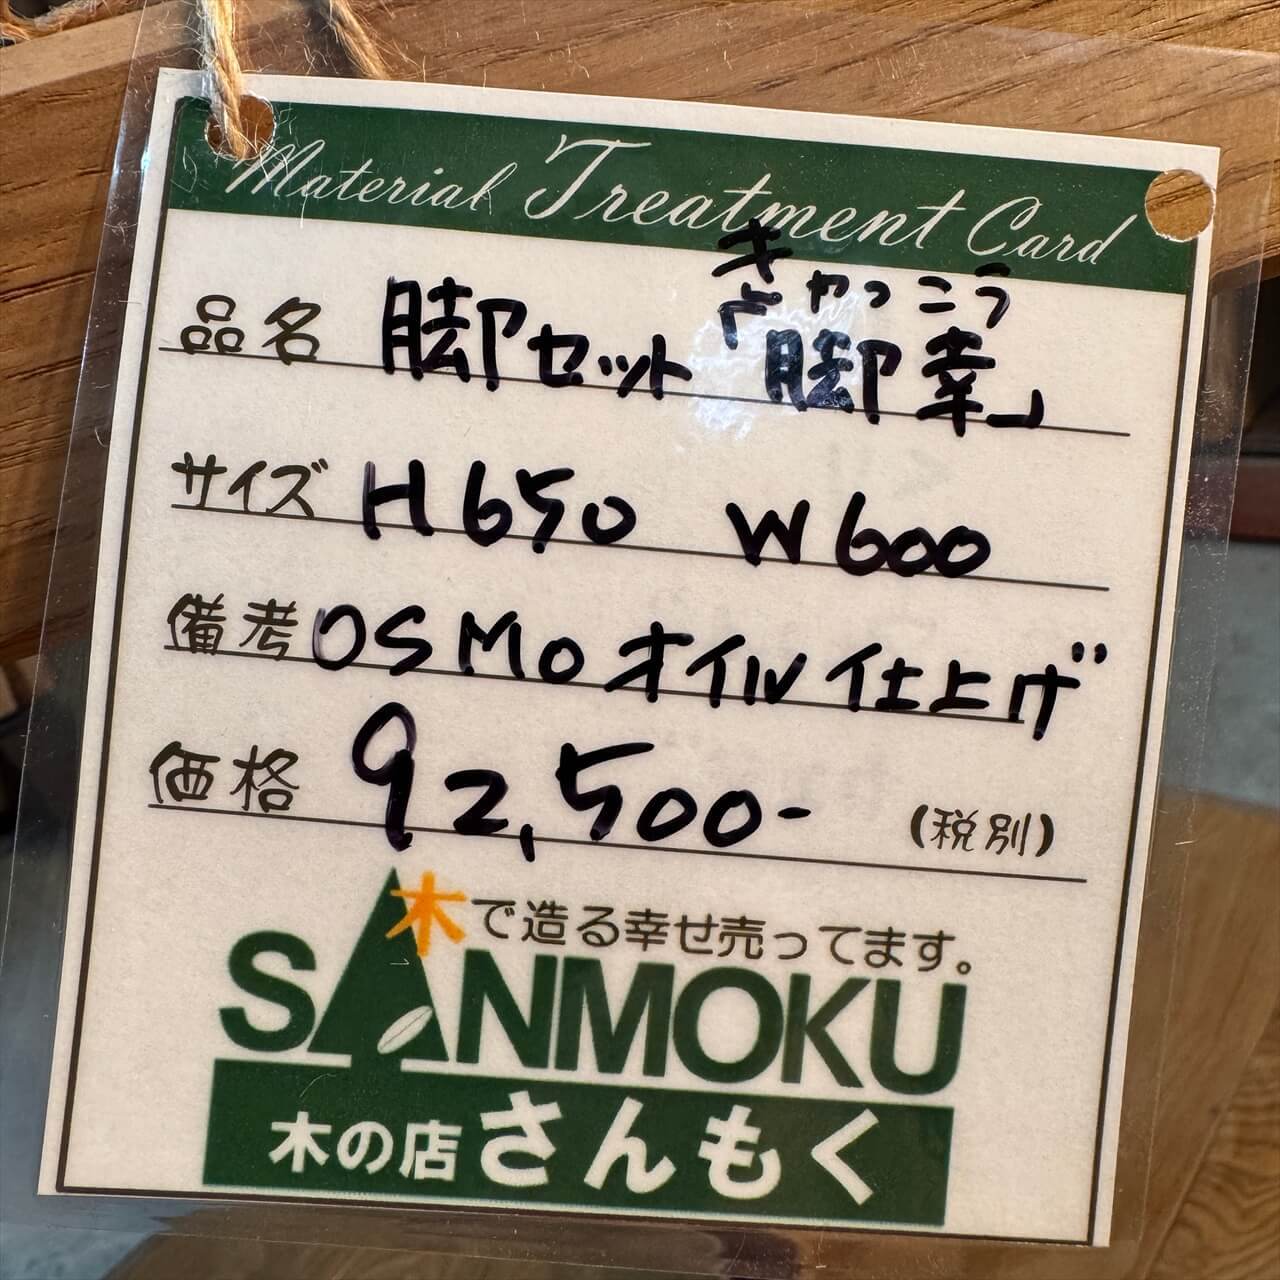 Material Treatment Card
きゃっこう
品名 脚セット「脚幸」
サイズ H650 W600
備考 OSMOオイル仕上げ
価格 92,500- (税別)
木で造る幸せ売ってます。
SANMOKU
木の店さんもく